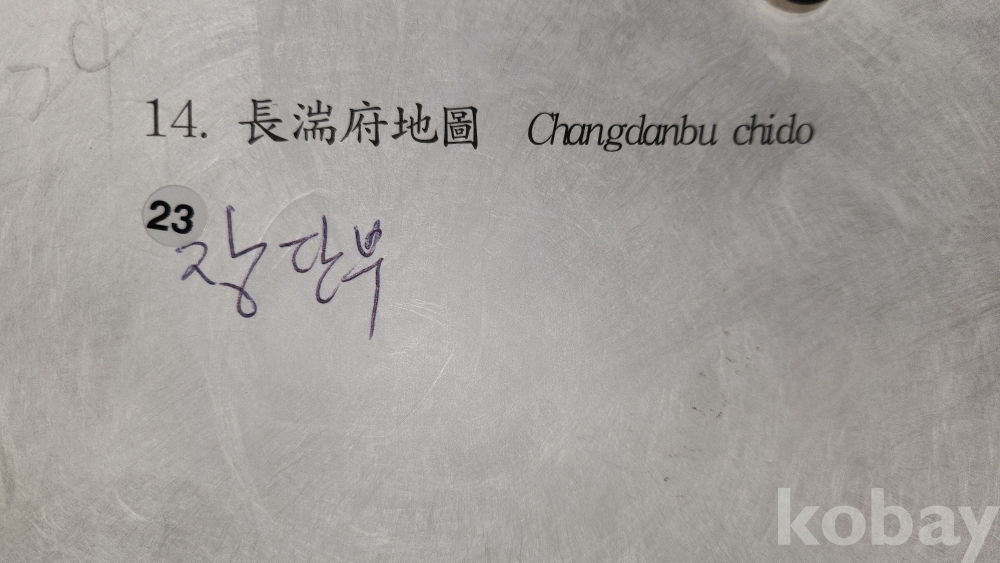 14. 長湍府地圖 Changdanbu chido
23
장단부
kobay